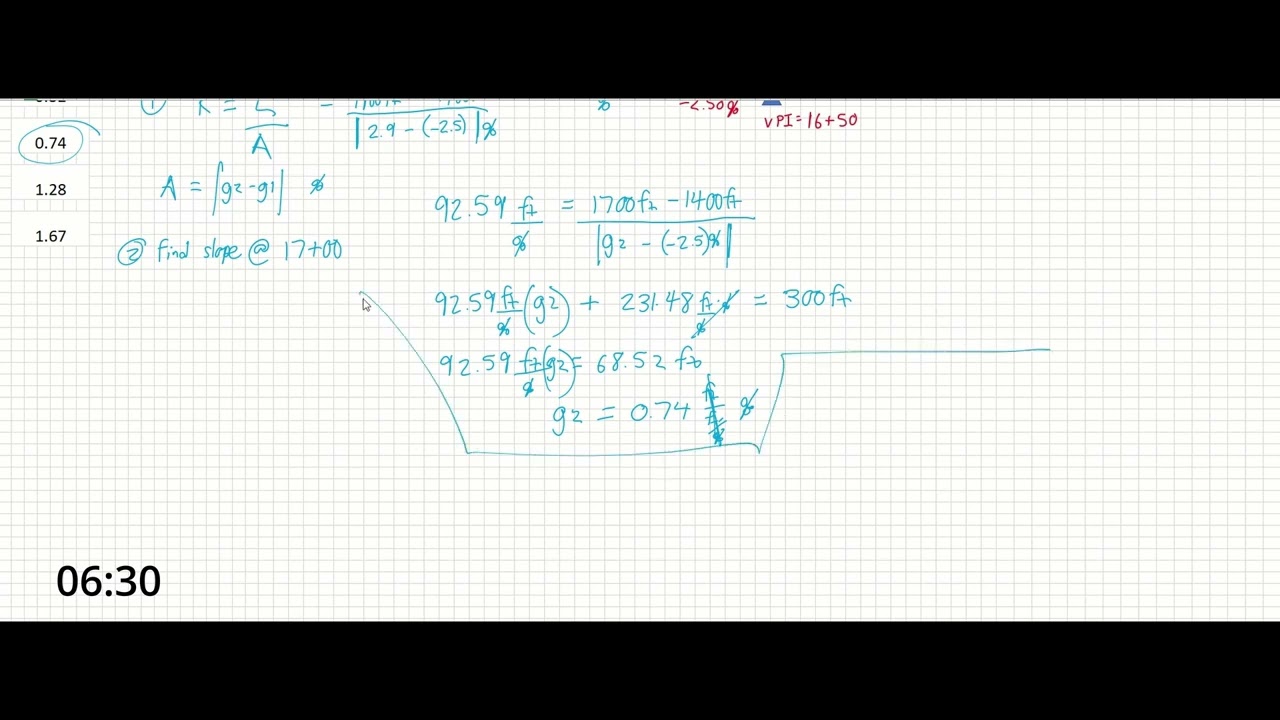 0.74
1.28
1.67
-2.50%
VPI=16+50
① K = L / A = / |2.9-(-2.5)|% %
A = |g2-g1| %
② find slope @ 17+00
92.59 ft/% = 1700ft - 1400ft / |g2 - (-2.5)%|
92.59 ft/% (g2) + 231.48 ft/% · % = 300ft
92.59 ft/% (g2) = 68.52 ft
g2 = 0.74 %
06:30